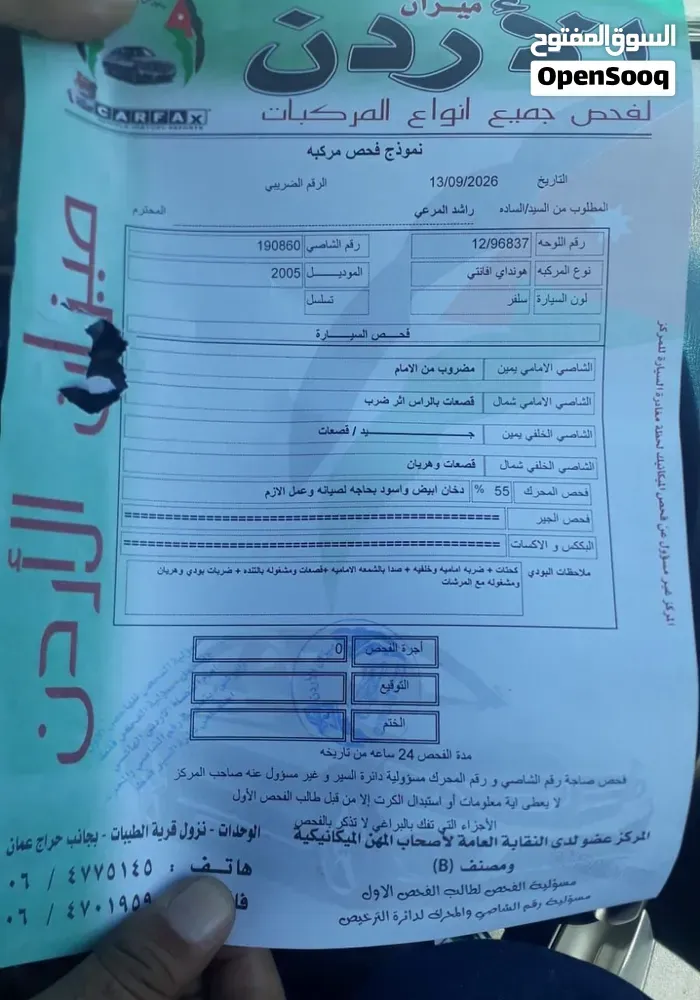 السوق المفتوح
OpenSooq
ميزان
الأردن
CARFAX
لفحص جميع انواع المركبات
نموذج فحص مركبه
التاريخ 13/09/2026 الرقم الضريبي
المطلوب من السيد/الساده راشد المرعي المحترم
رقم اللوحه 12/96837 رقم الشاصي 190860
نوع المركبه هونداي افانتي الموديـــــل 2005
لون السيارة سلفر تسلسل
فحـــص السيــــارة
الشاصي الامامي يمين مضروب من الامام
الشاصي الامامي شمال قصعات بالراس اثر ضرب
الشاصي الخلفي يمين جــــــــــــــيد / قصعات
الشاصي الخلفي شمال قصعات وهريان
فحص المحرك 55 % دخان ابيض واسود بحاجه لصيانه وعمل الازم
فحص الجير ================================================
البككس و الاكسات ================================================
ملاحظات البودي كحتات + ضربه اماميه وخلفيه + صدا بالشمعه الاماميه +قصعات ومشغوله بالتنده + ضربات بودي وهريان
ومشغوله مع المرشات
أجرة الفحص 0
التوقيع
الختم
مدة الفحص 24 ساعه من تاريخه
فحص صاجة رقم الشاصي و رقم المحرك مسؤولية دائرة السير و غير مسؤول عنه صاحب المركز
لا يعطى اية معلومات أو استبدال الكرت إلا من قبل طالب الفحص الأول
الأجزاء التي تفك بالبراغي لا تذكر بالفحص
المركز عضو لدى النقابة العامة لأصحاب المهن الميكانيكية
ومصنف (B)
مسؤولية الفحص لطالب الفحص الاول
مسؤولية رقم الشاصي والمحرك لدائرة الترخيص
الوحدات - نزول قرية الطيبات - بجانب حراج عمان
هاتف : ٤٧٧٥١٤٥ / ٠٦
٤٧٠١٩٥٩ / ٠٦
ميزان الأردن
المركز غير مسؤول عن فحص الميكانيك لحظة مغادرة السيارة للمركز